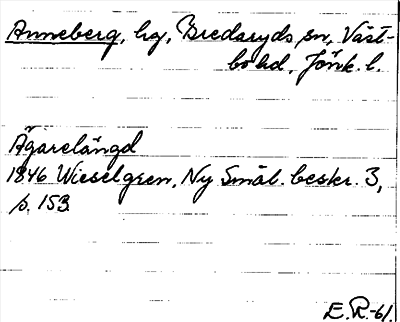 Anneberg, hg, Bredaryds sn, Väst-
bo hd, Jönk. l.
Ägarelängd
1846 Wieselgren, Ny Smål. beskr. 3,
s. 153.
E. R.-61.